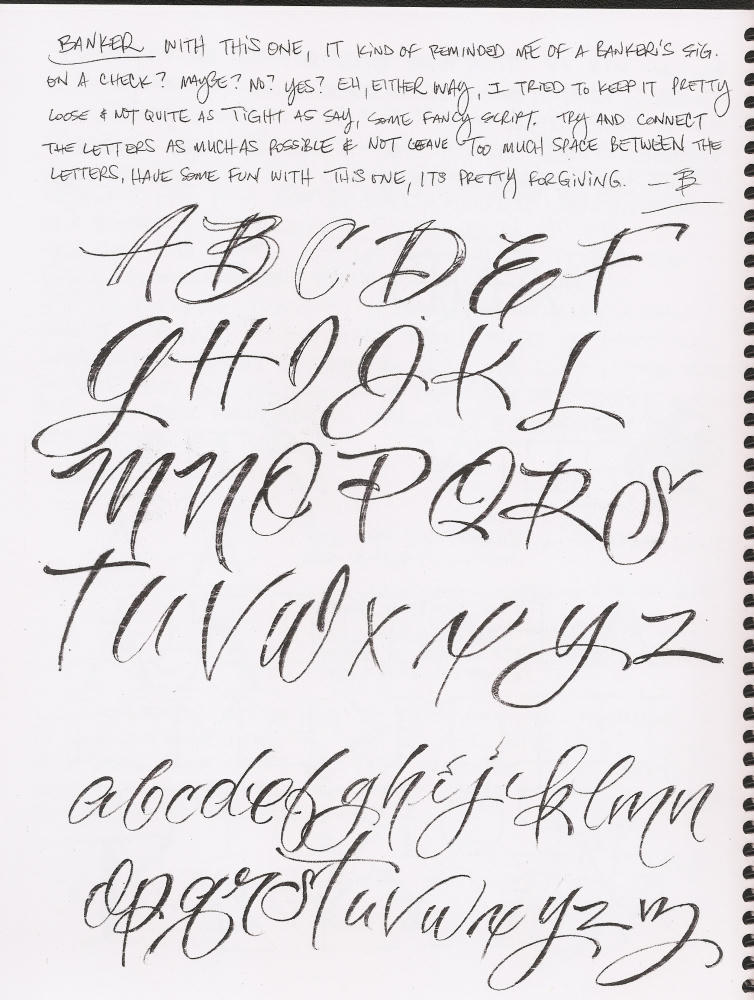 BANKER WITH THIS ONE, IT KIND OF REMINDED ME OF A BANKER'S SIG.
ON A CHECK? MAYBE? NO? YES? EH, EITHER WAY, I TRIED TO KEEP IT PRETTY
LOOSE & NOT QUITE AS TIGHT AS SAY, SOME FANCY SCRIPT. TRY AND CONNECT
THE LETTERS AS MUCH AS POSSIBLE & NOT LEAVE TOO MUCH SPACE BETWEEN THE
LETTERS, HAVE SOME FUN WITH THIS ONE, ITS PRETTY FORGIVING. —B
A B C D E F
G H I J K L
M N O P Q R S
T U V W X X Y Z
a b c d e f g h i j k l m n
o p q r s t u v w x y z z